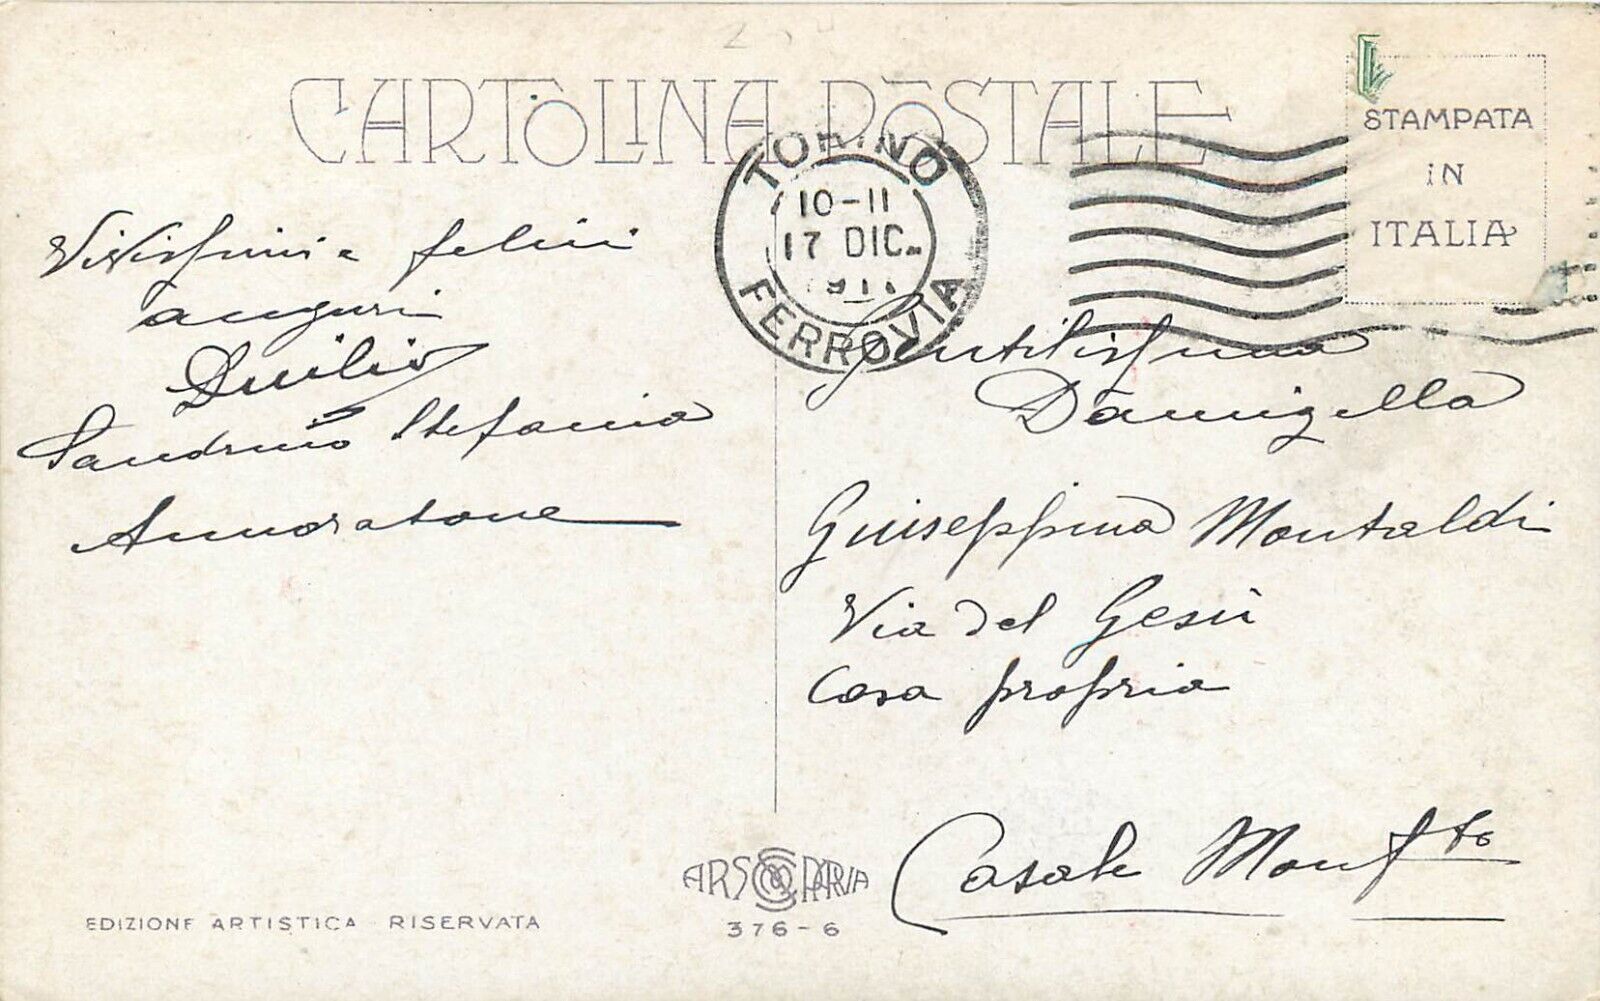 CARTOLINA POSTALE
TORINO
10-11
17 DIC.
1911
FERROVIA
STAMPATA
IN
ITALIA
Vivissimi e felici
auguri
Duilio
Sandrino Stefania
Ammoratore
Gentilissima
Damigella
Guiseppina Montaldi
Via del Gesù
Casa propria
Casale Monf.to
ARS PARVA
376-6
EDIZIONE ARTISTICA RISERVATA